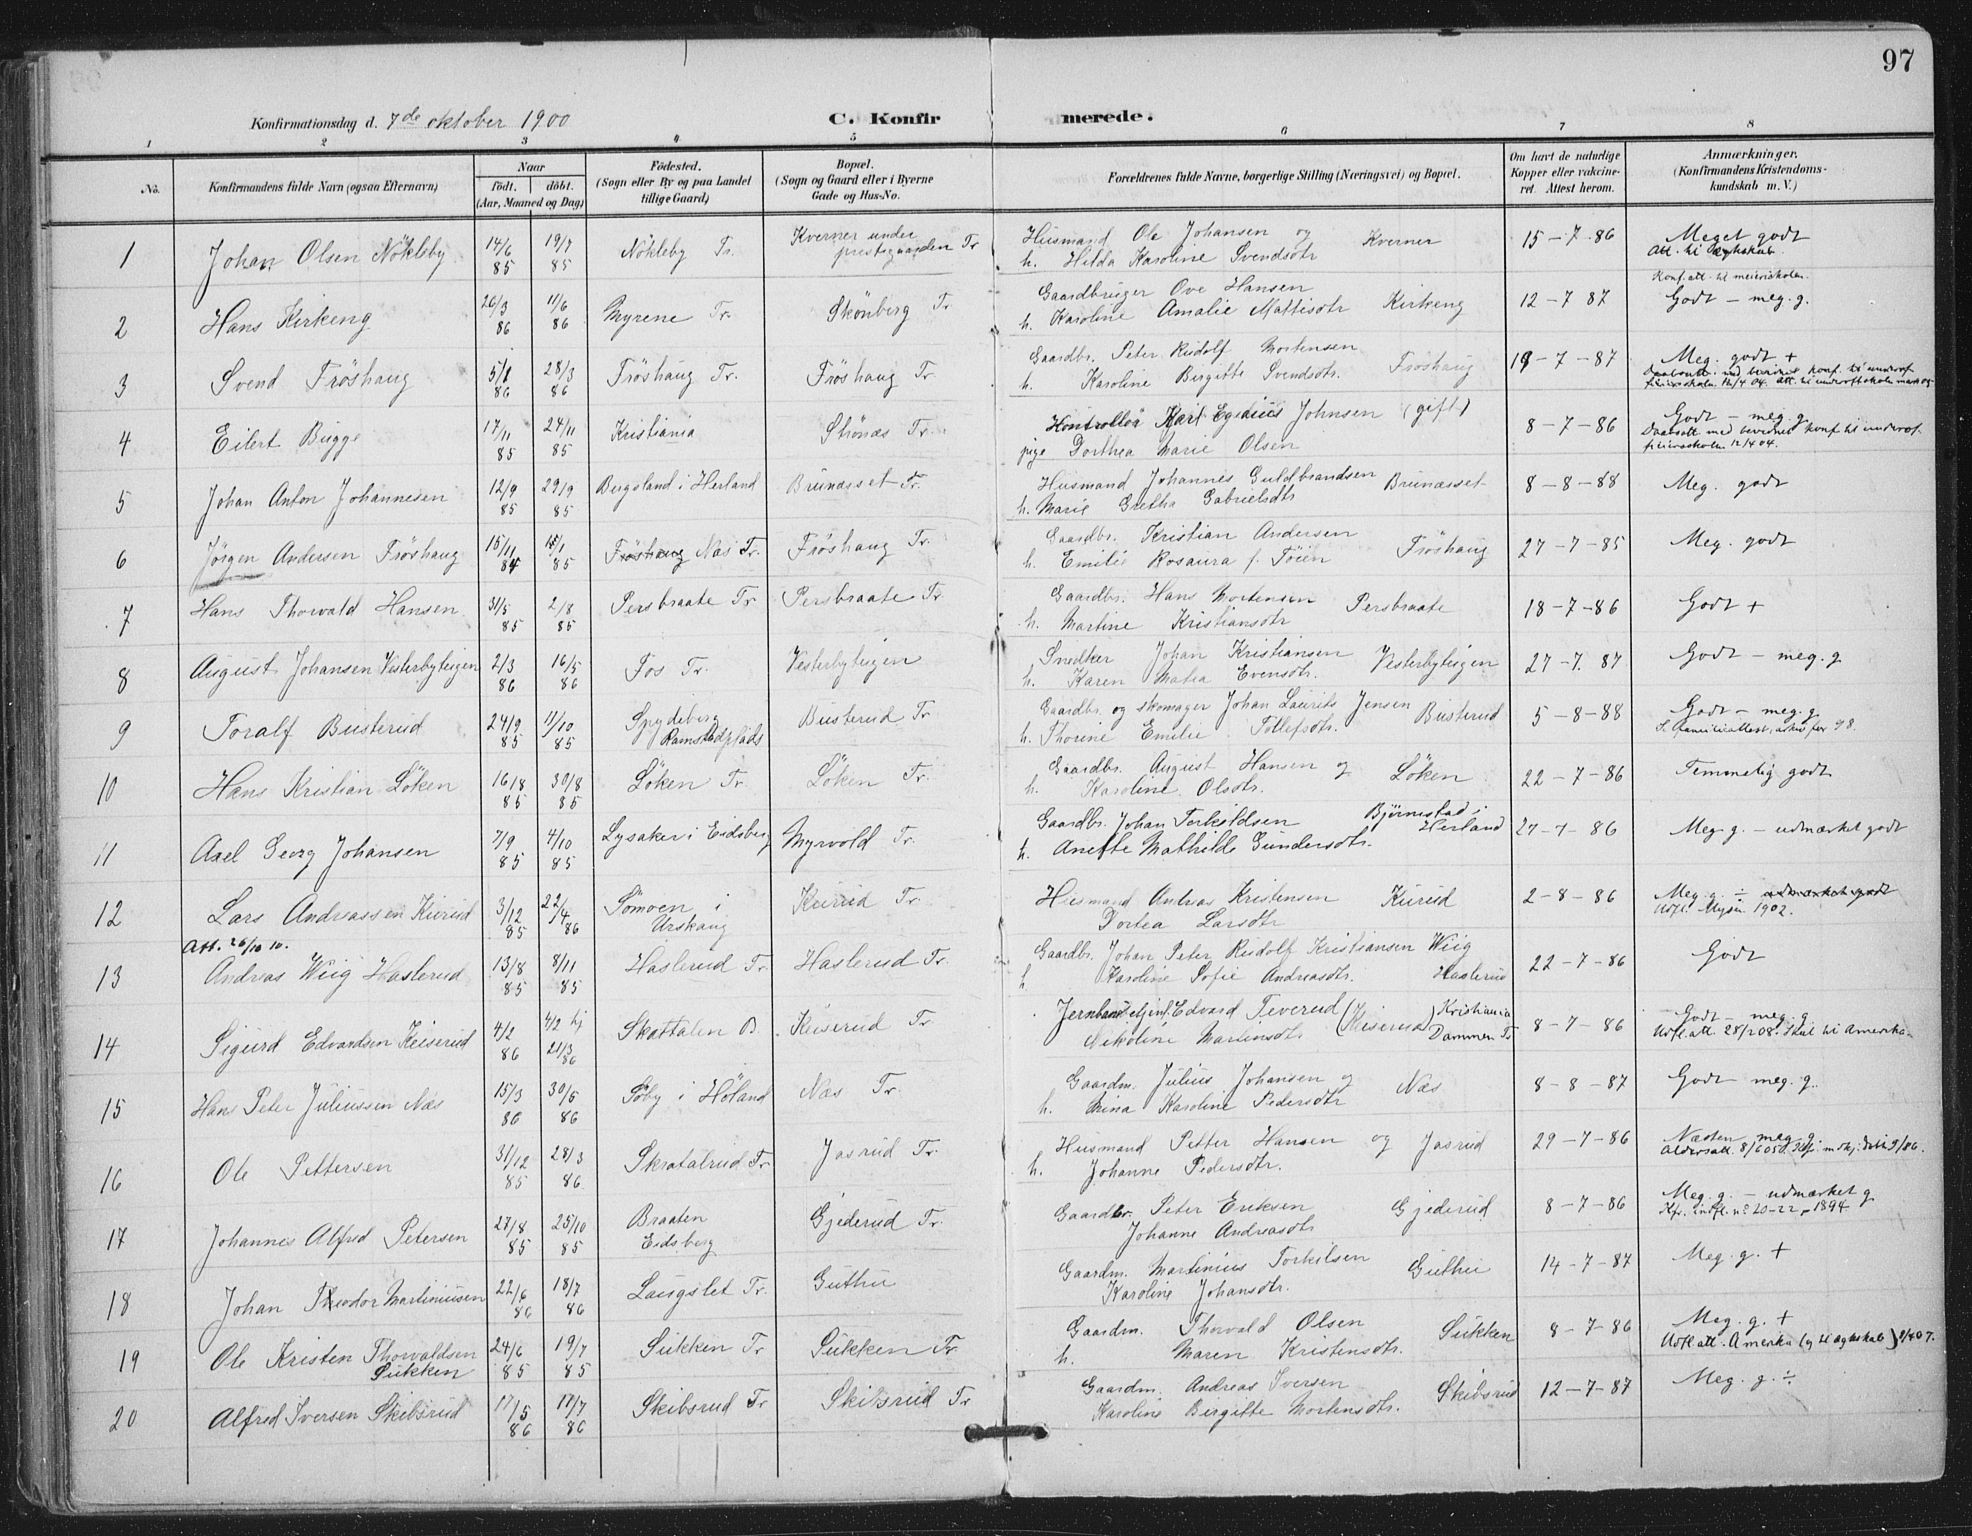 97
Konfirmationsdag d. 7de oktober 1900 C. Konfirmerede.
1 2 3 4 5 6 7 8
No. Konfirmandens fulde Navn (ogsaa Efternavn) Naar født. døbt. (Aar, Maaned og Dag) Fødested. (Sogn eller By og paa Landet tillige Gaard) Bopæl. (Sogn og Gaard eller i Byerne Gade og Hus-No. Forældrenes fulde Navne, borgerlige Stilling (Næringsvei) og Bopæl. Om havt de naturlige Kopper eller vakcineret. Attest herom. Anmærkninger. (Konfirmandens Kristendomskundskab m. V.)
1 Johan Olsen Nökleby 14/6 85 19/7 85 Nökleby Tr. Kverner under prestegaarden Tr Husmand Ole Johansen og Kverner 15-7-86 Meget godt
h. Hilda Karoline Svendsdtr Att. til ægteskab.
Konf. att. til meieriskolen.
2 Hans Kirkeng 20/3 86 11/6 86 Myrene Tr. Skönberg Tr Gaardbruger Ove Hansen Kirkeng 12-7 87 Godt - meg. g.
h. Karoline Amalie Mattisdtr
3 Svend Fröshaug 5/1 86 28/3 86 Fröshaug Tr. Fröshaug Tr Gaardbr. Peter Rudolf Mortensen Fröshaug 19-7-87 Meg. godt +
h. Karoline Birgitte Svendsdtr.
4 Eilert Bugge 17/11 85 24/11 85 Kristiania Tr. Kontrollör Karl Egidius Johnsen (gift) 8-7-86 Godt - meg. g.
pige Dorthea Marie Olsen Daabsatt med bevidnet konf til underof-
ficiersskolen 12/4 04.
5 Johan Anton Johannesen 12/9 85 29/9 85 Bergsland i Herland Brunæsset Tr. Husmand Johannis Guldbrandsen Brunæsset 8-8-88 Meg. godt
h. Marie Gretha Gabrielsdtr
6 Jørgen Andersen Fröshaug 15/11 84 85 Næs Tr. Fröshaug Tr. Gaardbr. Kristian Andersen Fröshaug 27-7-85 Meg. godt
h. Emilie Rosaura f. Töien
7 Hans Thorvald Hansen 31/5 85 2/8 85 Persbraate Tr Persbraate Tr Gaardbr. Hans Mortensen Persbraate 18-7-86 Godt +
h. Martine Kristiansdtr
8 August Johansen Vesterbyteigen 2/3 86 16/5 86 Fos Tr. Vesterbyteigen Snedker Johan Kristiansen Vesterbyteigen 27-7. 87 Godt - meg. g
h. Karen Matea Evensdtr.
9 Toralf Busterud 24/9 85 11/10 85 Spydeberg Ramstadplads Busterud Tr Gaardbr. og skomager Johan Laurits Jensen Busterud 5-8-88 Godt - meg. g
h. Thorine Emilie Tollefsdtr.
10 Hans Kristian Löken 16/8 85 30/8 85 Löken Tr Löken Tr. Gaardbr. August Hansen og Löken 22-7-86 Temmelig godt
h. Karoline Olsdtr.
11 Axel Georg Johansen 7/9 85 4/10 85 Lysaker i Eidsberg Myrvold Tr. Gaardbr. Johan Torkildsen Björnestad i Herland 27-7-86 Meg g. - udmærket godt
h. Anette Mathilde Gundersdtr.
12 Lars Andreassen Kurud 3/12 85 22/4 86 Sömoen i Urskaug Kurud Tr. Husmand Andreas Kristensen Kurud 2-8-86 Meg. g. ÷ udmærket godt
Dortea Larsdtr Udfl. Mysen 1902.
Att. 26/10 10.
13 Andreas Wiig Haslerud 13/8 85 8/11 85 Haslerud Tr Haslerud Tr. Gaardbr. Johan Peter Rudolf Kristiansen Wiig 22-7-86 Godt
h Karoline Sofie Andreasdtr. Haslerud
14 Sigurd Edvardsen Keiserud 4/2 86 4/2 hj 21/3 86 Skottalen B. Keiserud Tr Edvard Teverud Kristiania 8-7-86 Godt - meg. g.
Nikoline Martinsdtr (Keiserud) Dammen Tr Udfl. att. 28/2 08. Skal til Amerika.
15 Hans Peter Juliussen Næs 15/3 86 30/5 86 Söby i Höland Næs Tr. Gaardm. Julius Johansen og Næs 8-8-87 Godt meg. g.
h. Mina Karoline Pedersdtr
16 Ole Pettersen 31/12 85 28/3 86 Skratalrud Tr Jasrud Tr. Husmand Petter Hansen og Jasrud 29-7-86 Næsten meg. g.
h. Johanne Pedersdtr.
17 Johannes Alfred Petersen 27/8 85 25/10 85 Braaten Eidsberg Gjederud Tr. Gaardbr. Peter Eriksen Gjederud 8-7-86 Meg. g. - udmærket g
Johanne Andreasdtr Kfr. indfl. no 20-22, 1894
18 Johan Theodor Martiniusen 22/6 86 18/7 86 Laugslet Tr. Guthu Gaardm. Martinius Torkilsen Guthu 14-7-87 Meg. g. +
Karoline Johansdtr.
19 Ole Kristen Thorvaldsen Sükken 24/6 85 19/7 85 Sukken Tr Sukken Tr. Gaardm. Thorvald Olsen Sukken 8-7-86 Meg. g. +
h. Maren Kristensdtr. Udfl. att. Amerika (og til ægteskab) 9/4 07.
20 Alfred Iversen Skibsrud 17/5 86 17/7 86 Skibsrud Tr Skibsrud Tr Gaardm. Andreas Iversen Skibsrud 12-7-87 Meg. g. ÷
Karoline Birgitte Mortensdtr.